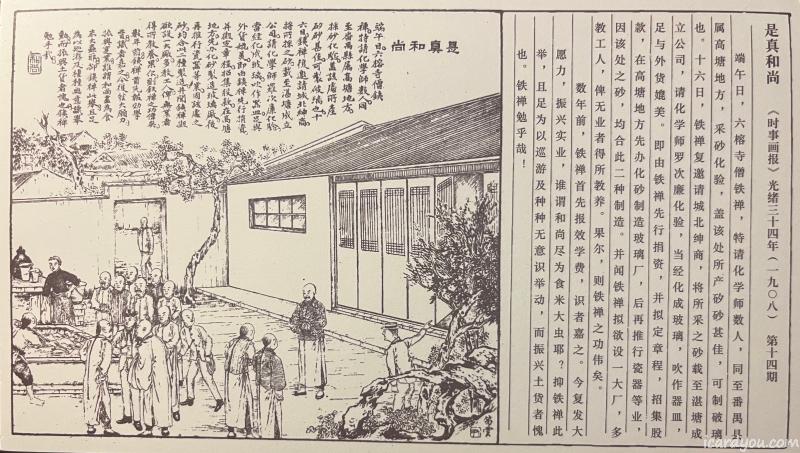 是真和尚 《时事画报》光绪三十四年(一九〇八) 第十四期
端午日,六榕寺僧铁禅,特请化学师数人,同至番禺县
属高塘地方,采砂化验,盖该处所产矽砂甚佳,可制玻璃
也。十六日,铁禅复邀请城北绅商,将所采之砂载至湛塘成
立公司,请化学师罗次廉化验,当经化成玻璃,吹作器皿,
足与外货媲美。即由铁禅先行捐资,并拟定章程,招集股
款,在高塘地方先办化砂制造玻璃厂,后再推行瓷器等业,
因该处之砂,均合此二种制造。并闻铁禅拟欲设一大厂,多
教工人,俾无业者得所教养。果尔,则铁禅之功伟矣。
数年前,铁禅首先报效学费,识者嘉之。今复发大
愿力,振兴实业,谁谓和尚尽为食米大虫耶?抑铁禅此
举,且足为以巡游及种种无意识举动,而振兴土货者愧
也。铁禅勉乎哉!
是真和尚
端午日六榕寺僧鐵
禪特請化學師數人同
至番禺縣屬高塘地方
採砂化驗蓋該處所產
矽砂甚佳可製玻璃也十
六日鐵禪復邀請城北紳商
將所採之砂載至湛塘成立
公司請化學師羅次廉化驗
當經化成玻璃吹作器皿足與
外貨媲美即由鐵禪先行捐資
并擬定章程招集股款在高塘
地方先辦化砂製造玻璃廠後
再推行瓷器等業因該處之
砂均合此二種製造并聞鐵禪擬
欲設一大廠多教工人俾無業者
得所教養果爾則鐵禪之功偉矣
數年前鐵禪首先報效學
費識者嘉之今復發大願力
振興實業誰謂和尚盡為食
米大蟲耶抑鐵禪此舉且足
為以巡游及種種無意識舉
動而振興土貨者愧也鐵禪
勉乎哉
icarayou.com